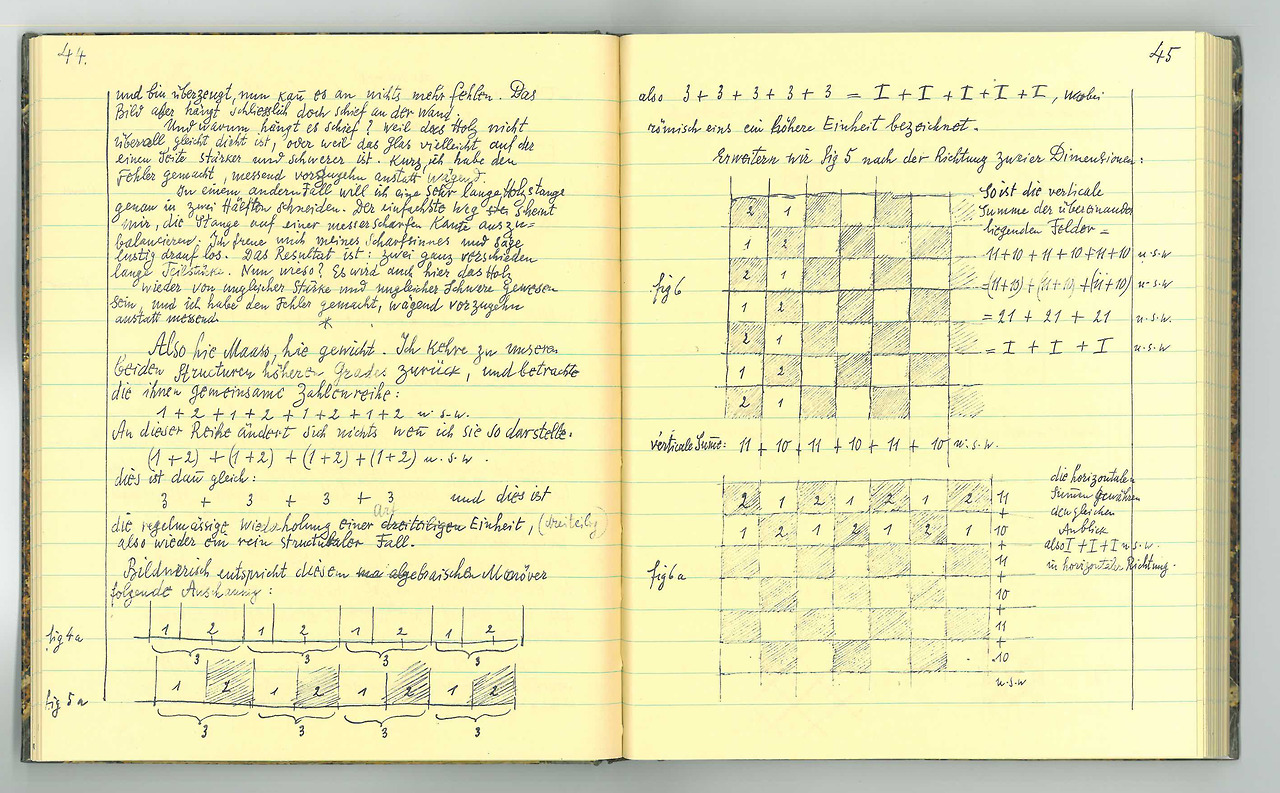 44.
und bin überzeugt, nun kañ es an nichts mehr fehlen. Das
Bild aber hängt schliesslich doch schief an der Wand.
Und warum hängt es schief? Weil das Holz nicht
überall gleich dicht ist, oder weil das Glas vielleicht auf der
einen Seite stärker und schwerer ist. Kurz, ich habe den
Fehler gemacht, messend vorzugehn anstatt wägend.
In einem andern Fall will ich eine sehr lange Holzstange
genau in zwei Hälften schneiden. Der einfachste Weg scheint
mir, die Stange auf einer messerscharfen Kante auszu=
balancieren. Ich freue mich meines Scharfsinnes und säge
lustig drauf los. Das Resultat ist: zwei ganz verschieden
lange Teilstücke. Nun wieso? Es wird auch hier das Holz
wieder von ungleicher Stärke und ungleicher Schwere gewesen
sein, und ich habe den Fehler gemacht, wägend vorzugehn
anstatt messend.
*
Also hie Maass, hie gewicht. Ich kehre zu unseren
beiden Structuren höheren Grades zurück, und betrachte
die ihnen gemeinsame Zahlenreihe:
1 + 2 + 1 + 2 + 1 + 2 + 1 + 2 u. s. w.
An dieser Reihe ändert sich nichts weñ ich sie so darstelle.
(1 + 2) + (1 + 2) + (1 + 2) + (1 + 2) u. s. w.
dies ist dañ gleich:
3 + 3 + 3 + 3 und dies ist
die regelmässige Wiederholung einer dreiteiligen Einheit, (dreiteilig)
also wieder ein rein structuraler Fall.
Bildnerisch entspricht diesem algebraischen Manöver
folgende
fig 4a
1 2 1 2 1 2 1 2
3 3 3 3
fig 5a
1 2 1 2 1 2 1 2
3 3 3 3
45
also 3 + 3 + 3 + 3 + 3 = I + I + I + I + I, wobei
römisch eins ein höhere Einheit bezeichnet.
Erweitern wir fig 5 nach der Richtung zweier Dimensionen:
So ist die verticale
Summe der übereinander
liegenden Felder =
11+10 + 11 + 10 + 11 + 10 u. s. w
(11+10) + (11+10) + (11+10) u. s. w
= 21 + 21 + 21 u. s. w.
= I + I + I u. s. w
fig 6
2 1
1 2
2 1
1 2
2 1
1 2
2 1
verticale Sum̃e: 11 + 10 + 11 + 10 + 11 + 10 u. s. w.
fig 6a
2 1 2 1 2 1 2 11
+
1 2 1 2 1 2 1 10
+
11
+
10
+
11
+
10
u. s. w
die horizontalen
Sum̃en gewähren
den gleichen
Anblick
also I + I + I u. s. w.
in horizontaler Richtung.